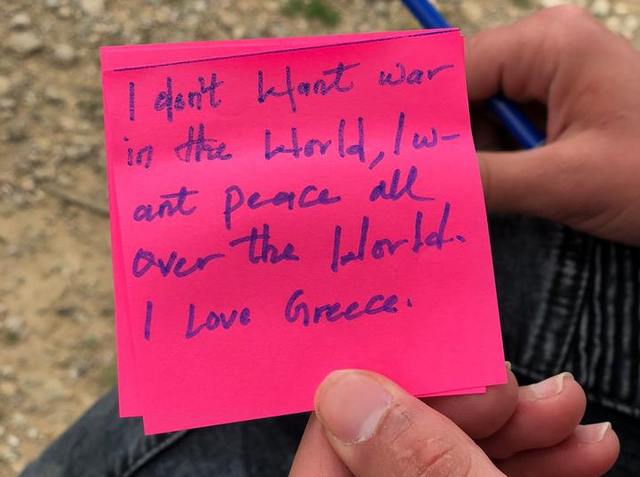 I don't want war
in the world, I w-
ant peace all
over the world.
I Love Greece.